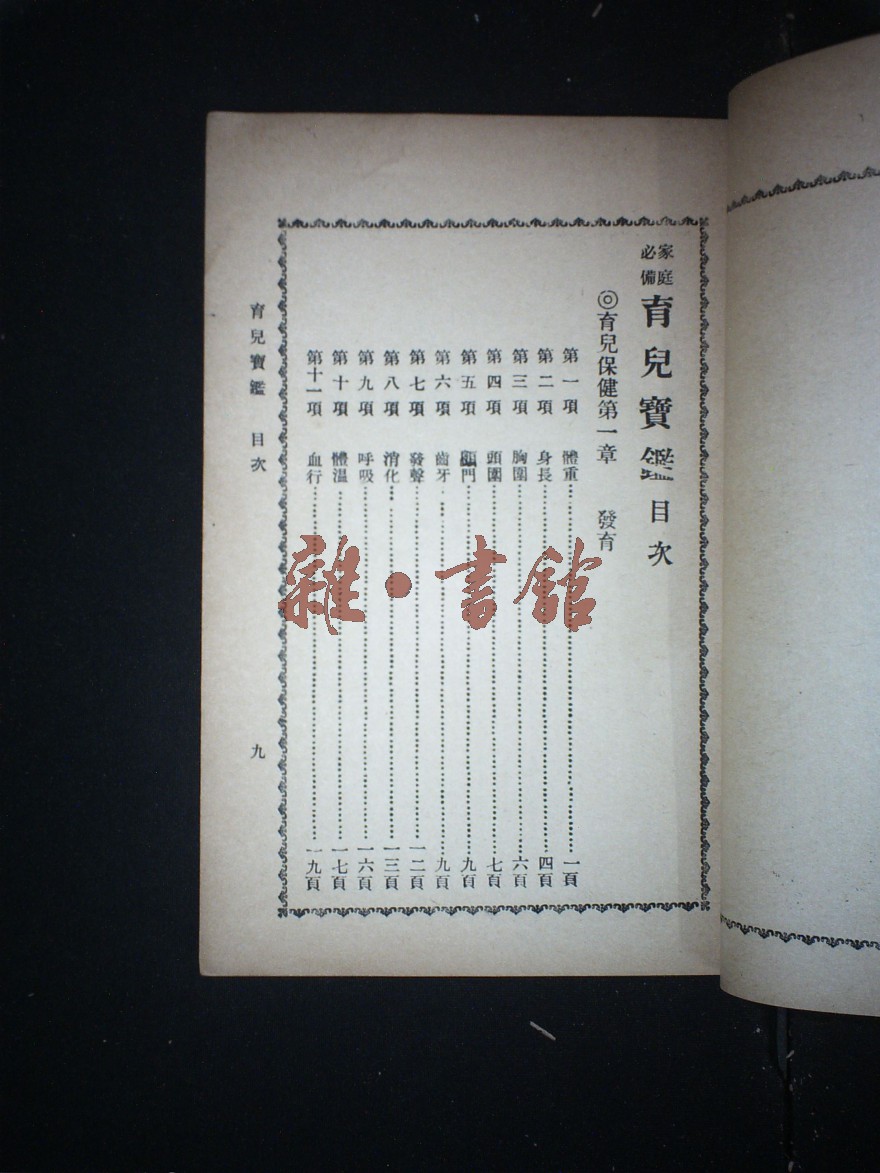 家庭必備 育兒寶鑑 目次
◎育兒保健第一章 發育
第一項 體重……一頁
第二項 身長……四頁
第三項 胸圍……六頁
第四項 頭圍……七頁
第五項 顖門……九頁
第六項 齒牙……九頁
第七項 發聲……一二頁
第八項 消化……一三頁
第九項 呼吸……一六頁
第十項 體溫……一七頁
第十一項 血行……一九頁
育兒寶鑑 目次 九
雜·書館